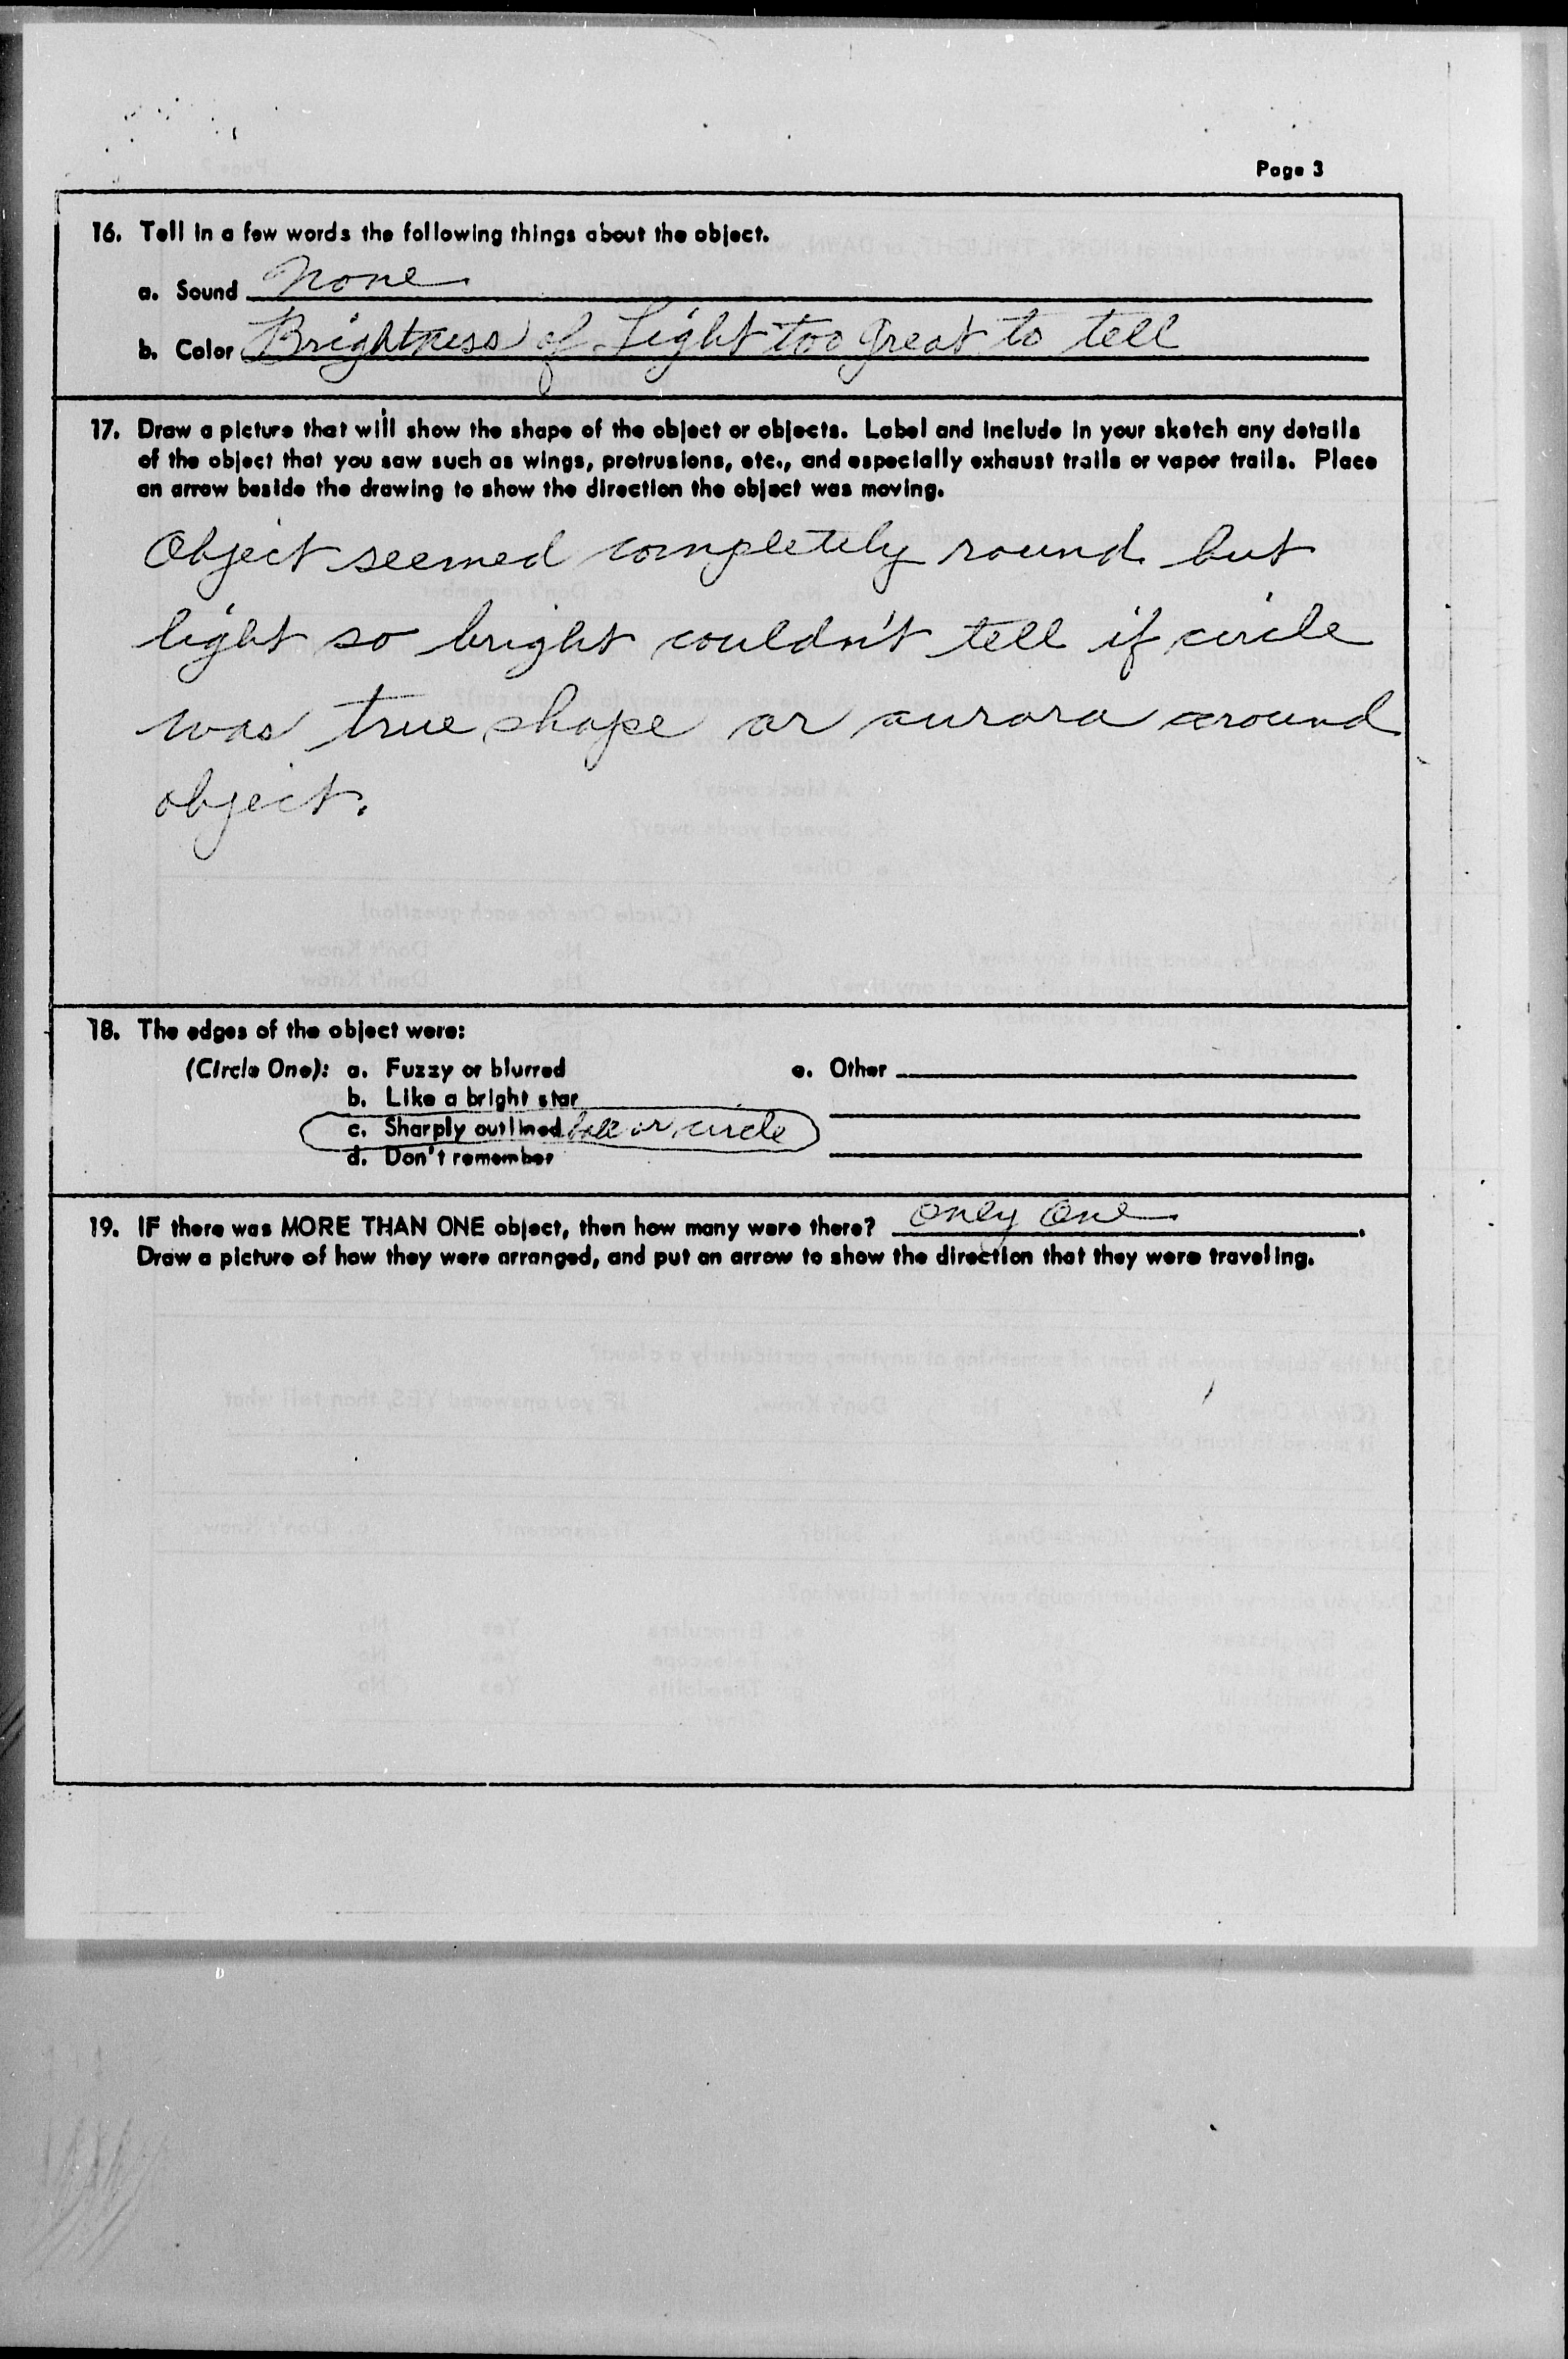 Page 3
16. Tell in a few words the following things about the object.
a. Sound None
b. Color Brightness of Light too great to tell
17. Draw a picture that will show the shape of the object or objects. Label and include in your sketch any details
of the object that you saw such as wings, protrusions, etc., and especially exhaust trails or vapor trails. Place
an arrow beside the drawing to show the direction the object was moving.
Object seemed completely round but
light so bright couldn't tell if circle
was true shape or aurora around
object.
18. The edges of the object were:
(Circle One): a. Fuzzy or blurred e. Other
b. Like a bright star
c. Sharply outlined ball or circle
d. Don't remember
19. IF there was MORE THAN ONE object, then how many were there? only one
Draw a picture of how they were arranged, and put an arrow to show the direction that they were traveling.